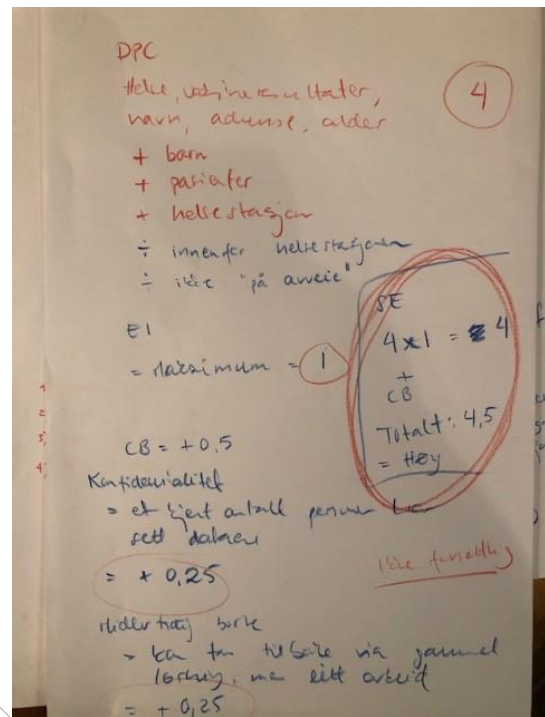 DPC
Helse, vaksineresultater,
navn, adresse, alder
4
+ barn
+ pasienter
+ helsestasjon
÷ innenfor helsestasjonen
÷ ikke "på avveie"
EI
= Maksimum = 1
SE
4 x 1 = 4
+
CB
Totalt: 4,5
= Høy
CB = + 0,5
Konfidensialitet
= et kjent antall personer har
sett dataene
= + 0,25
ikke
Midlertidig borte
= kan tas tilbake via gammel
løsning, men litt arbeid
= + 0,25